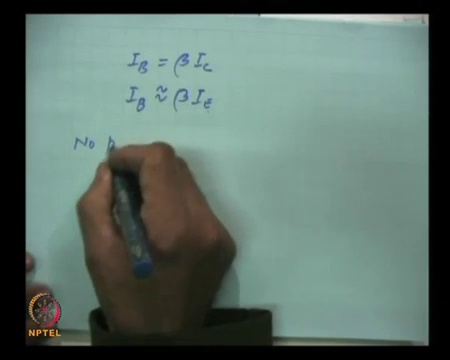 I_B = β I_C
I_B ≈ β I_E
No
NPTEL